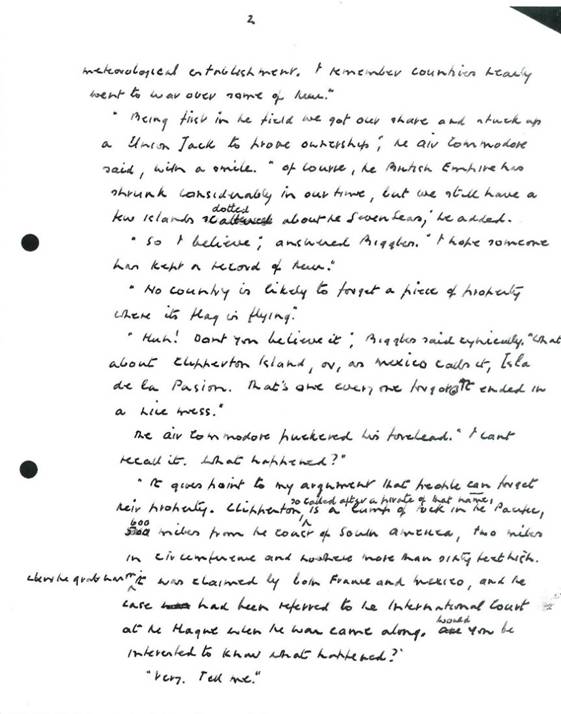 2
meteorological establishment. I remember countries nearly
went to war over some of them."
"Being first in the field we got our share and stuck up
a Union Jack to prove ownership", the air commodore
said, with a smile. "Of course, the British Empire has
shrunk considerably in our time, but we still have a
dotted
few islands scattered about the Seven Seas," he added.
"So I believe", answered Biggles. "I hope someone
has kept a record of them."
"No country is likely to forget a piece of property
where its flag is flying".
"Huh! Don't you believe it", Biggles said cynically. "What
about Clipperton Island, or, as Mexico calls it, Isla
de la Pasion. That's one everyone forgot. It ended in
a nice mess."
The air commodore puckered his forehead. "I cant
recall it. What happened?"
"It gives point to my argument that people can forget
so called after a pirate of that name,
their property. Clipperton, is a lump of rock in the Pacific,
600
miles from the coast of South America, two miles
in circumference and nowhere more than sixty feet high.
It was claimed by both France and Mexico, and the
case had been referred to the International Court
at the Hague when the war came along. would
you be
interested to know what happened?"
"Very. Tell me."